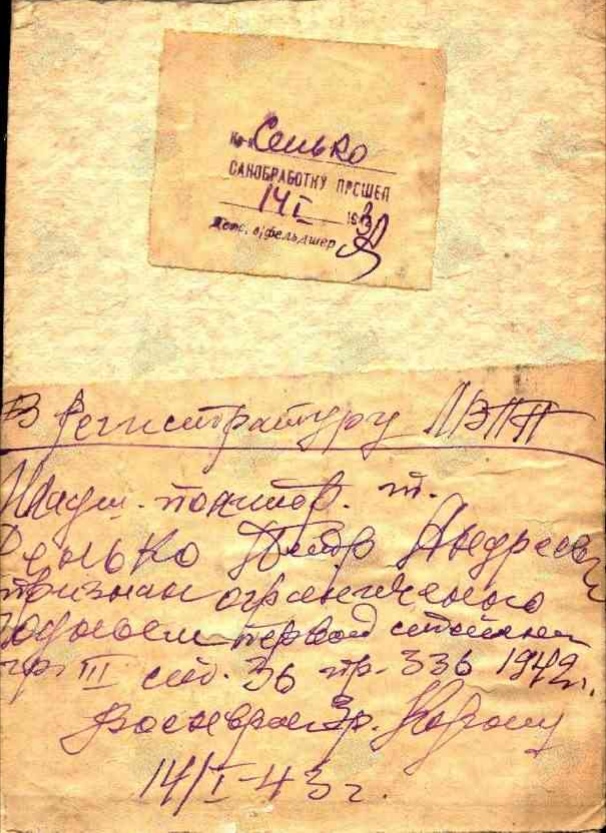 Сенько
САНОБРАБОТКУ ПРОШЕЛ
14 I
фельдшер
В Регистратуру
Младш. т.
Сенько Петр Андреевич
признан ограниченно
годным первой степени
гр III ст. 36 пр. 336 1942г.
Военврач 3р.
14/I-43г.